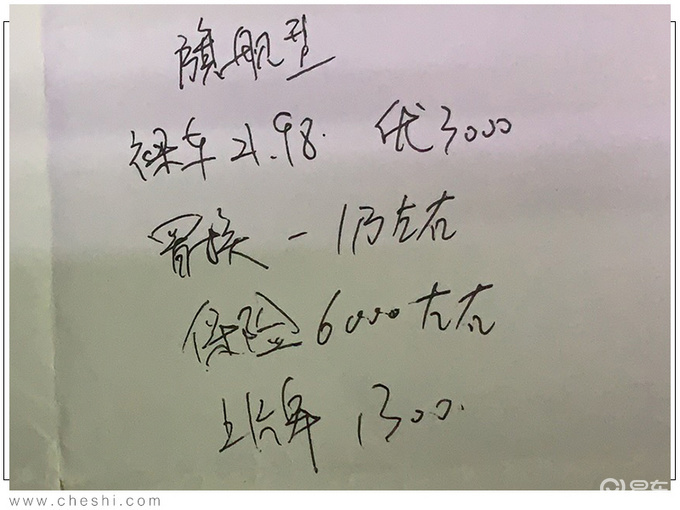 旗舰型
裸车21.98. 优3000
置换-1万左右
保险6000左右
上牌1300.
www.cheshi.com
易车